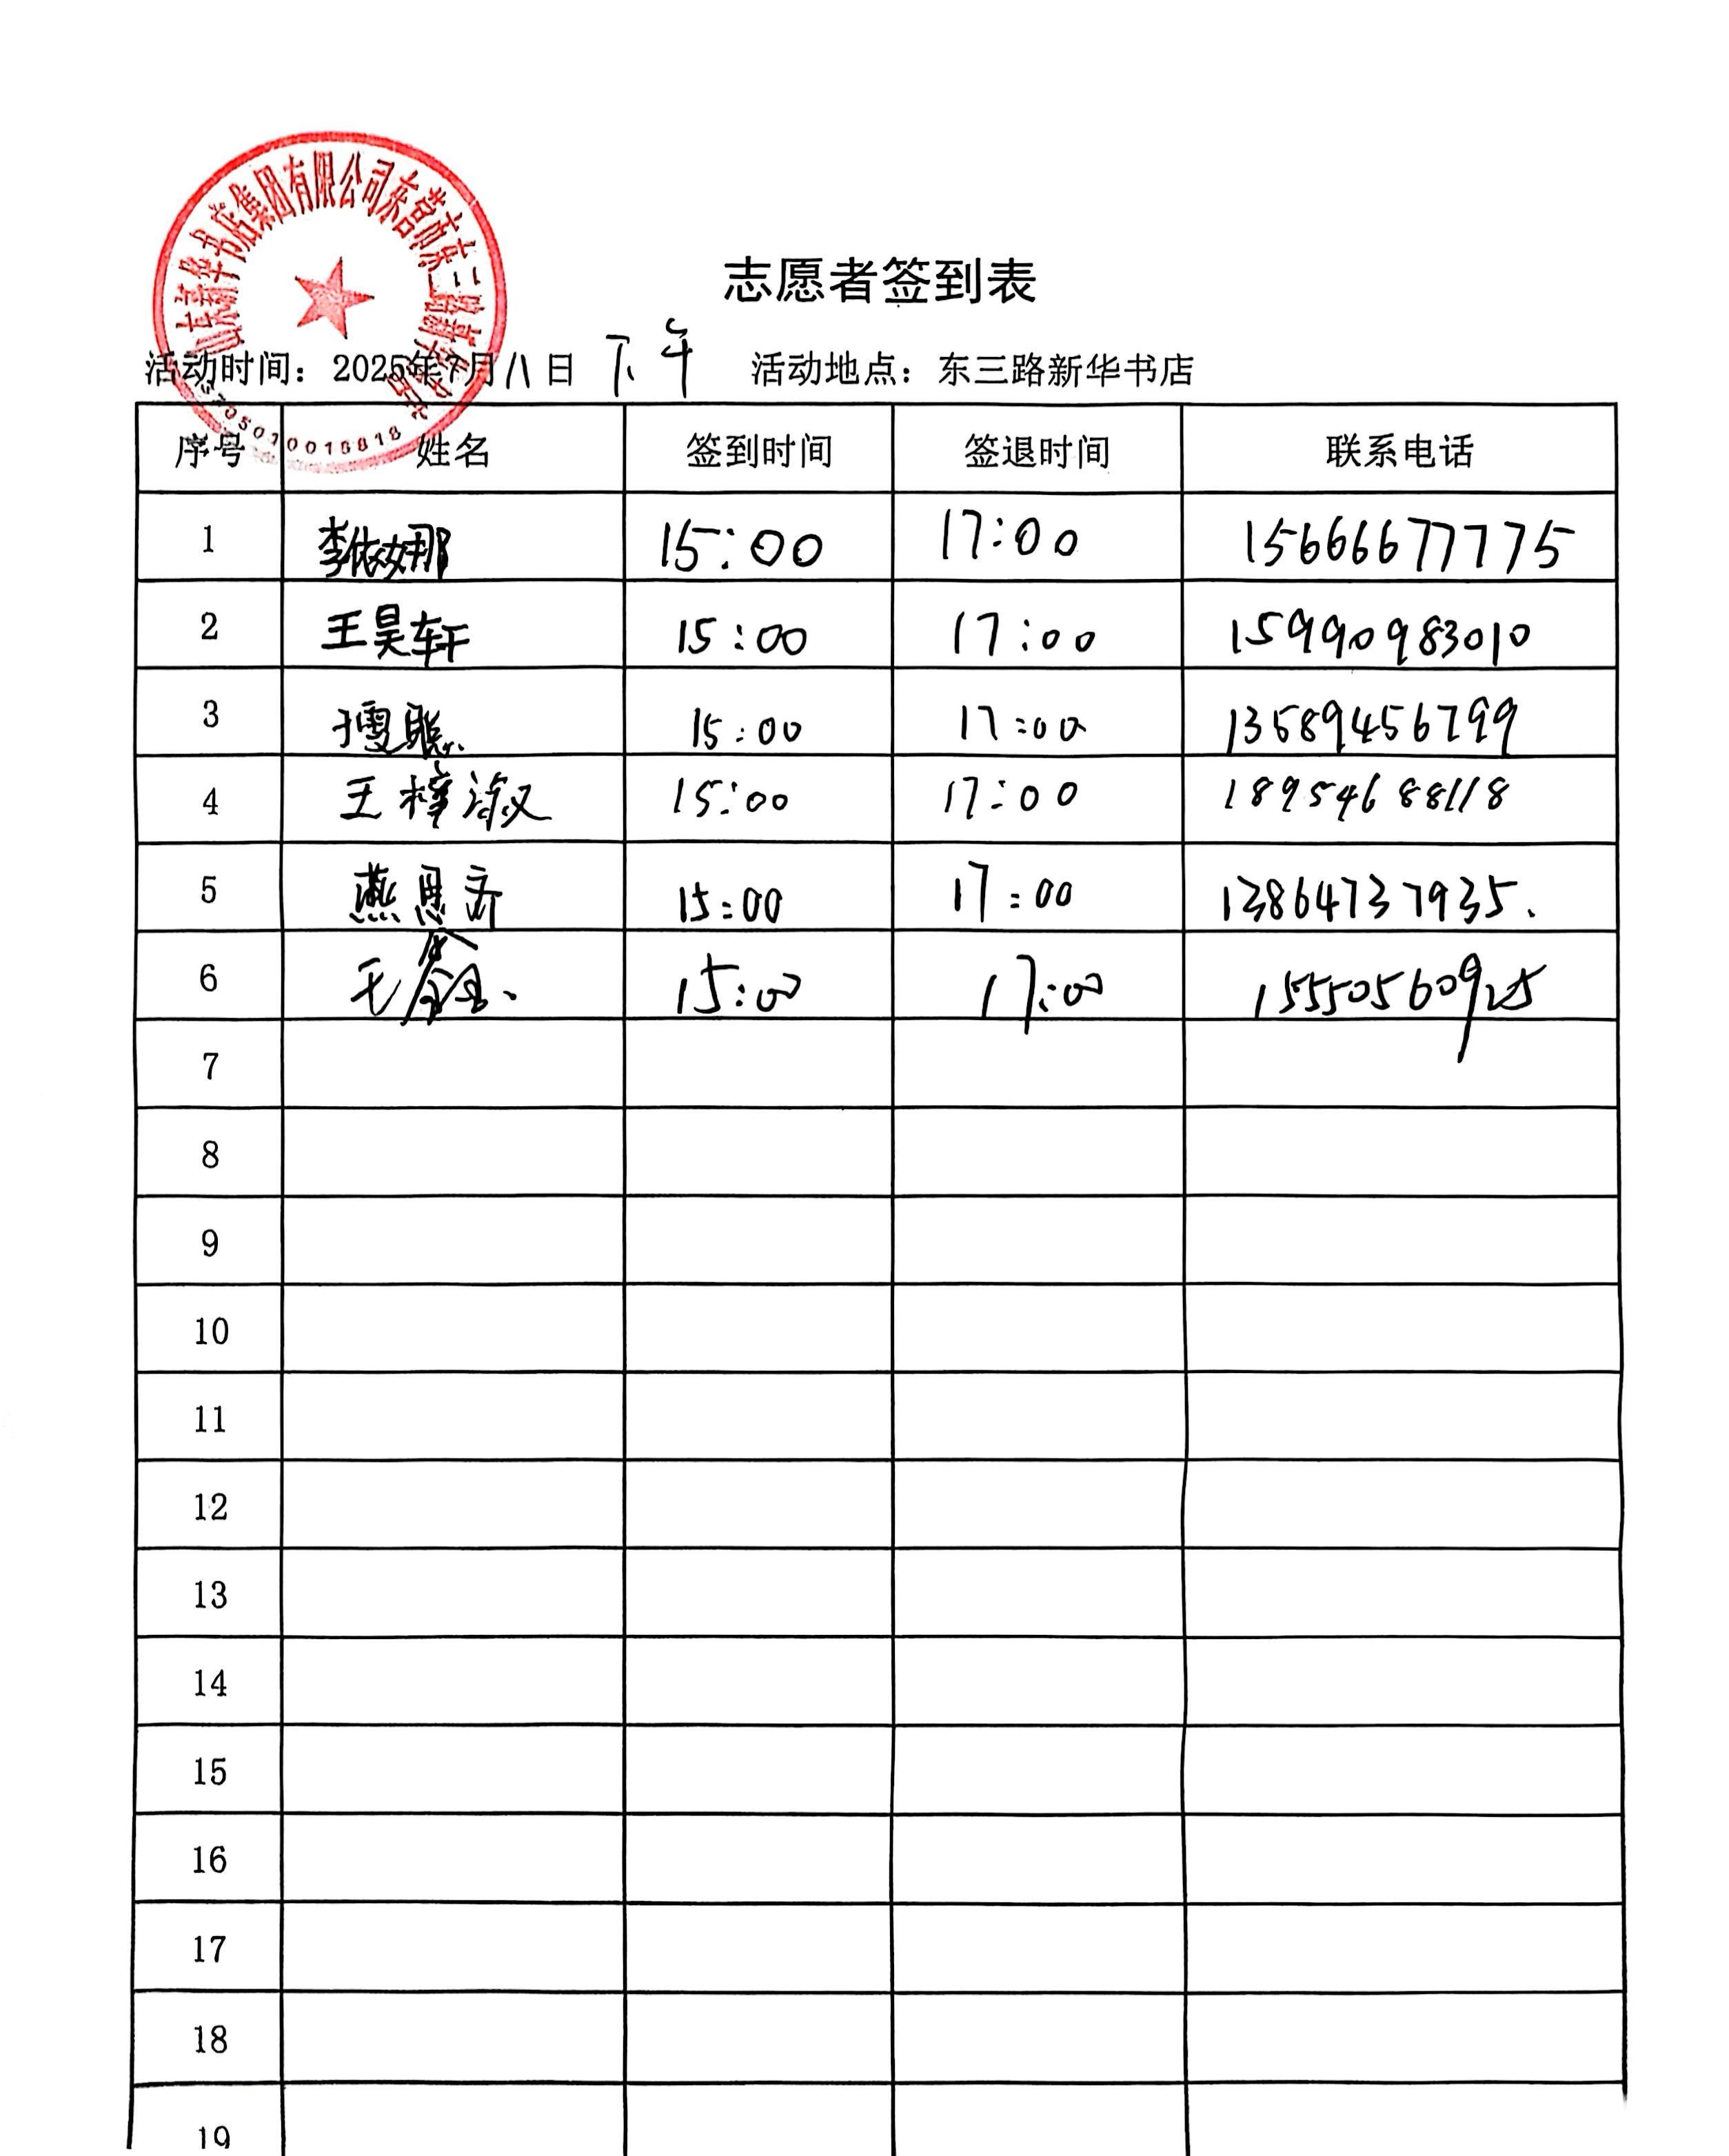 山东新华书店集团有限公司东营市东三路新华书店
志愿者签到表
活动时间：2025年7月八日 下午 活动地点：东三路新华书店
序号 姓名 签到时间 签退时间 联系电话
1 李依娜 15:00 17:00 15666677775
2 王昊轩 15:00 17:00 15990983010
3 15:00 17:00 13589456799
4 王梓淑 15:00 17:00 18954688118
5 燕思齐 15:00 17:00 13864737935.
6 毛 15:00 17:00 15550560925
7
8
9
10
11
12
13
14
15
16
17
18
19